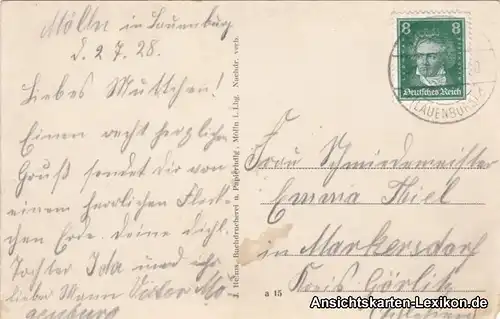 Mölln in Lauenburg
d. 2 7. 28.
Liebes Muttchen!
Einen recht herzlichen
Gruß sendet dir von
einem herrlichen Fleck-
chen Erde. Deine dich
Tochter Ida und ihr
lieber Mann
J. Helms, Buchdruckerei u. Papierhdlg., Mölln i. Lbg. Nachdr. verb.
a 15
8 8
Deutsches Reich
LAUENBURG
Frau Schmiedemeister
Emma Thiel
in Markersdorf
Kreis Görlitz
Schlesien
Ansichtskarten-Lexikon.de